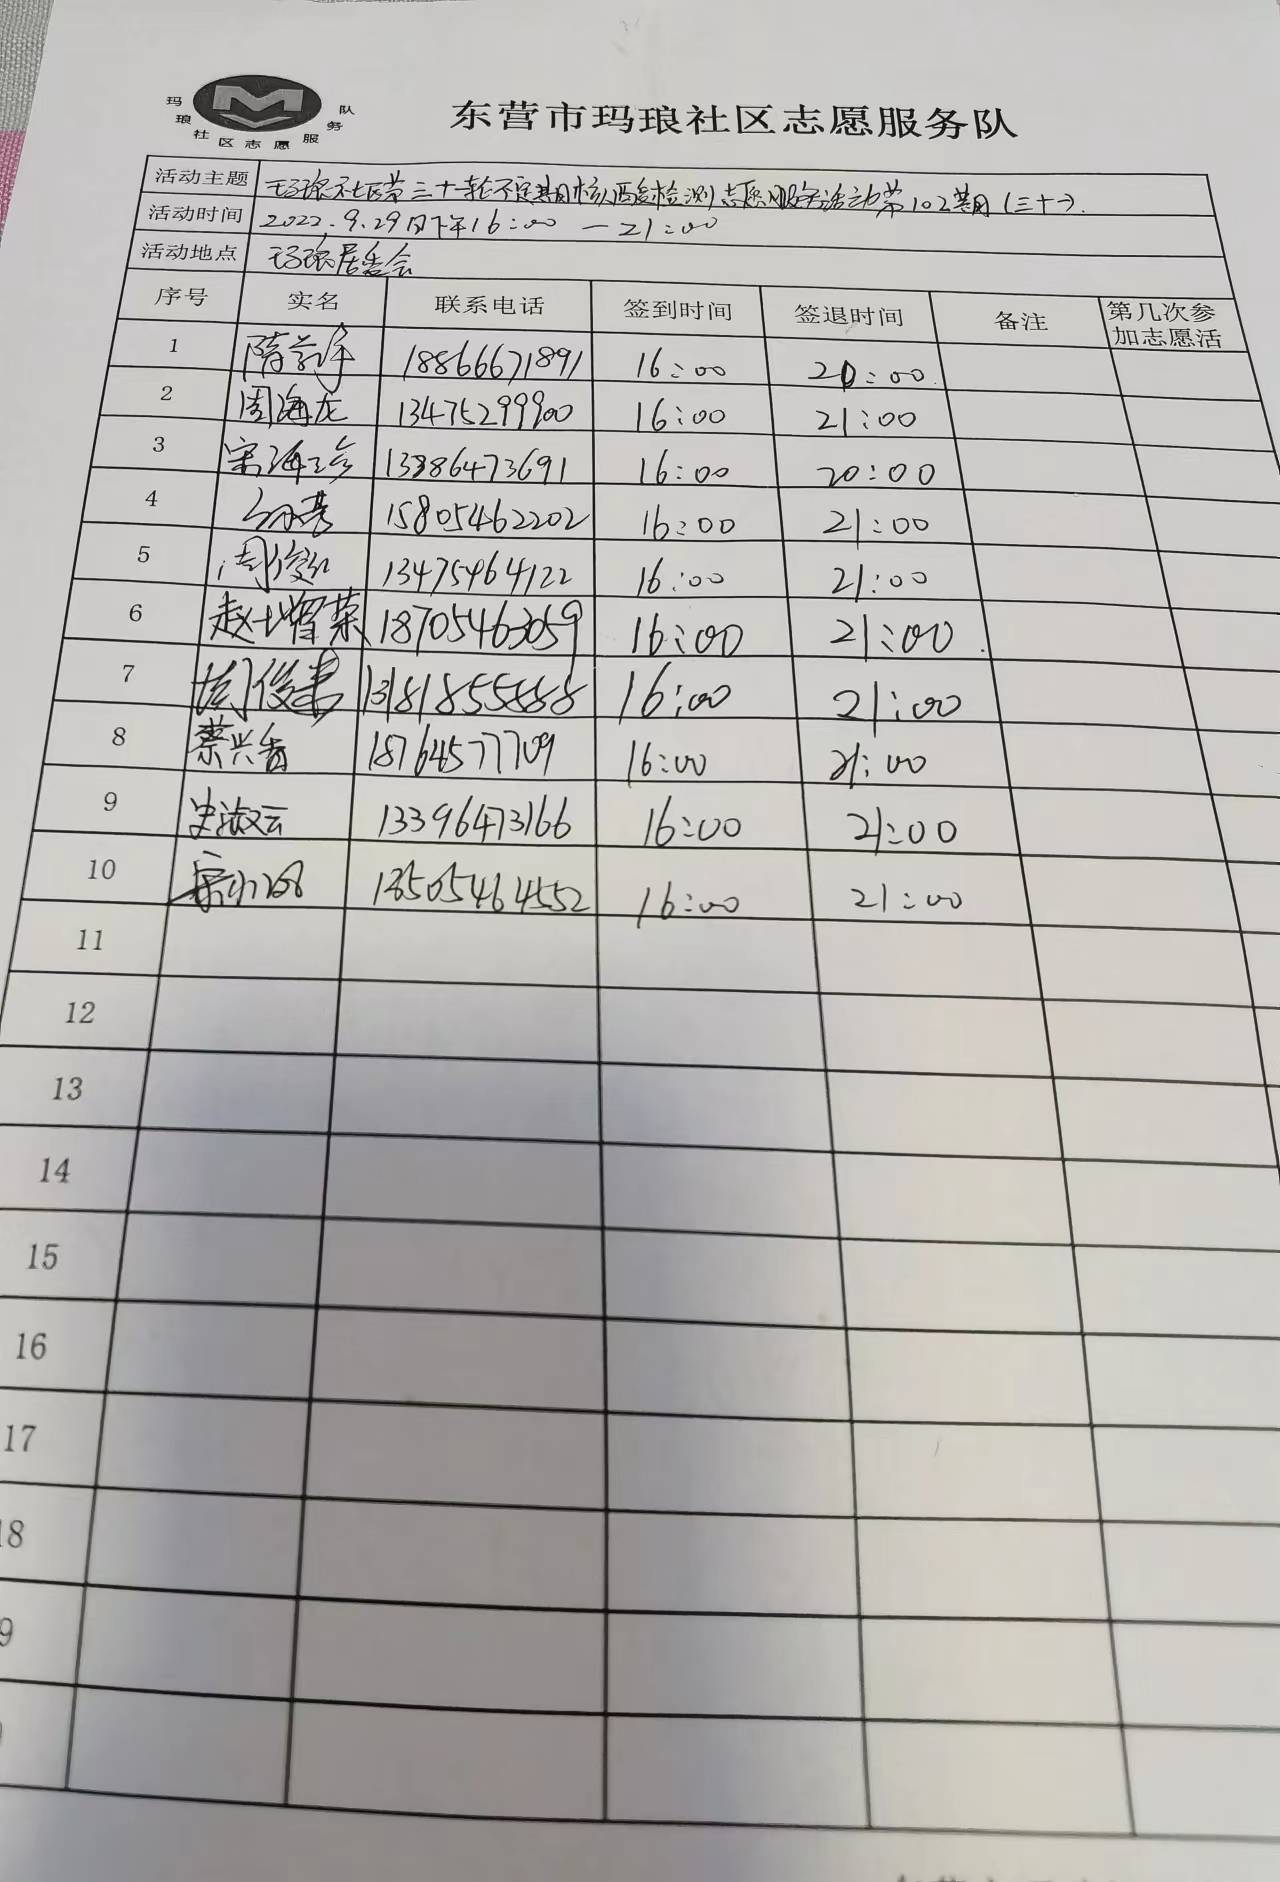 玛琅社区志愿服务队
东营市玛琅社区志愿服务队
活动主题 玛琅社区第三十一轮不定期核酸检测志愿服务活动第102期(三十一).
活动时间 2022.9.29日下午16:00 — 21:00
活动地点 玛琅居委会
序号 实名 联系电话 签到时间 签退时间 备注 第几次参加志愿活
1 18866671891 16:00 20:00
2 周海龙 13475299900 16:00 21:00
3 宋海珍 13386473691 16:00 20:00
4 15805462202 16:00 21:00
5 周俊 13475464122 16:00 21:00
6 赵增荣 18705463059 16:00 21:00
7 周俊 13181855888 16:00 21:00
8 蔡兴香 18764577709 16:00 21:00
9 史淑云 13396473166 16:00 21:00
10 13505464552 16:00 21:00
11
12
13
14
15
16
17
18
9